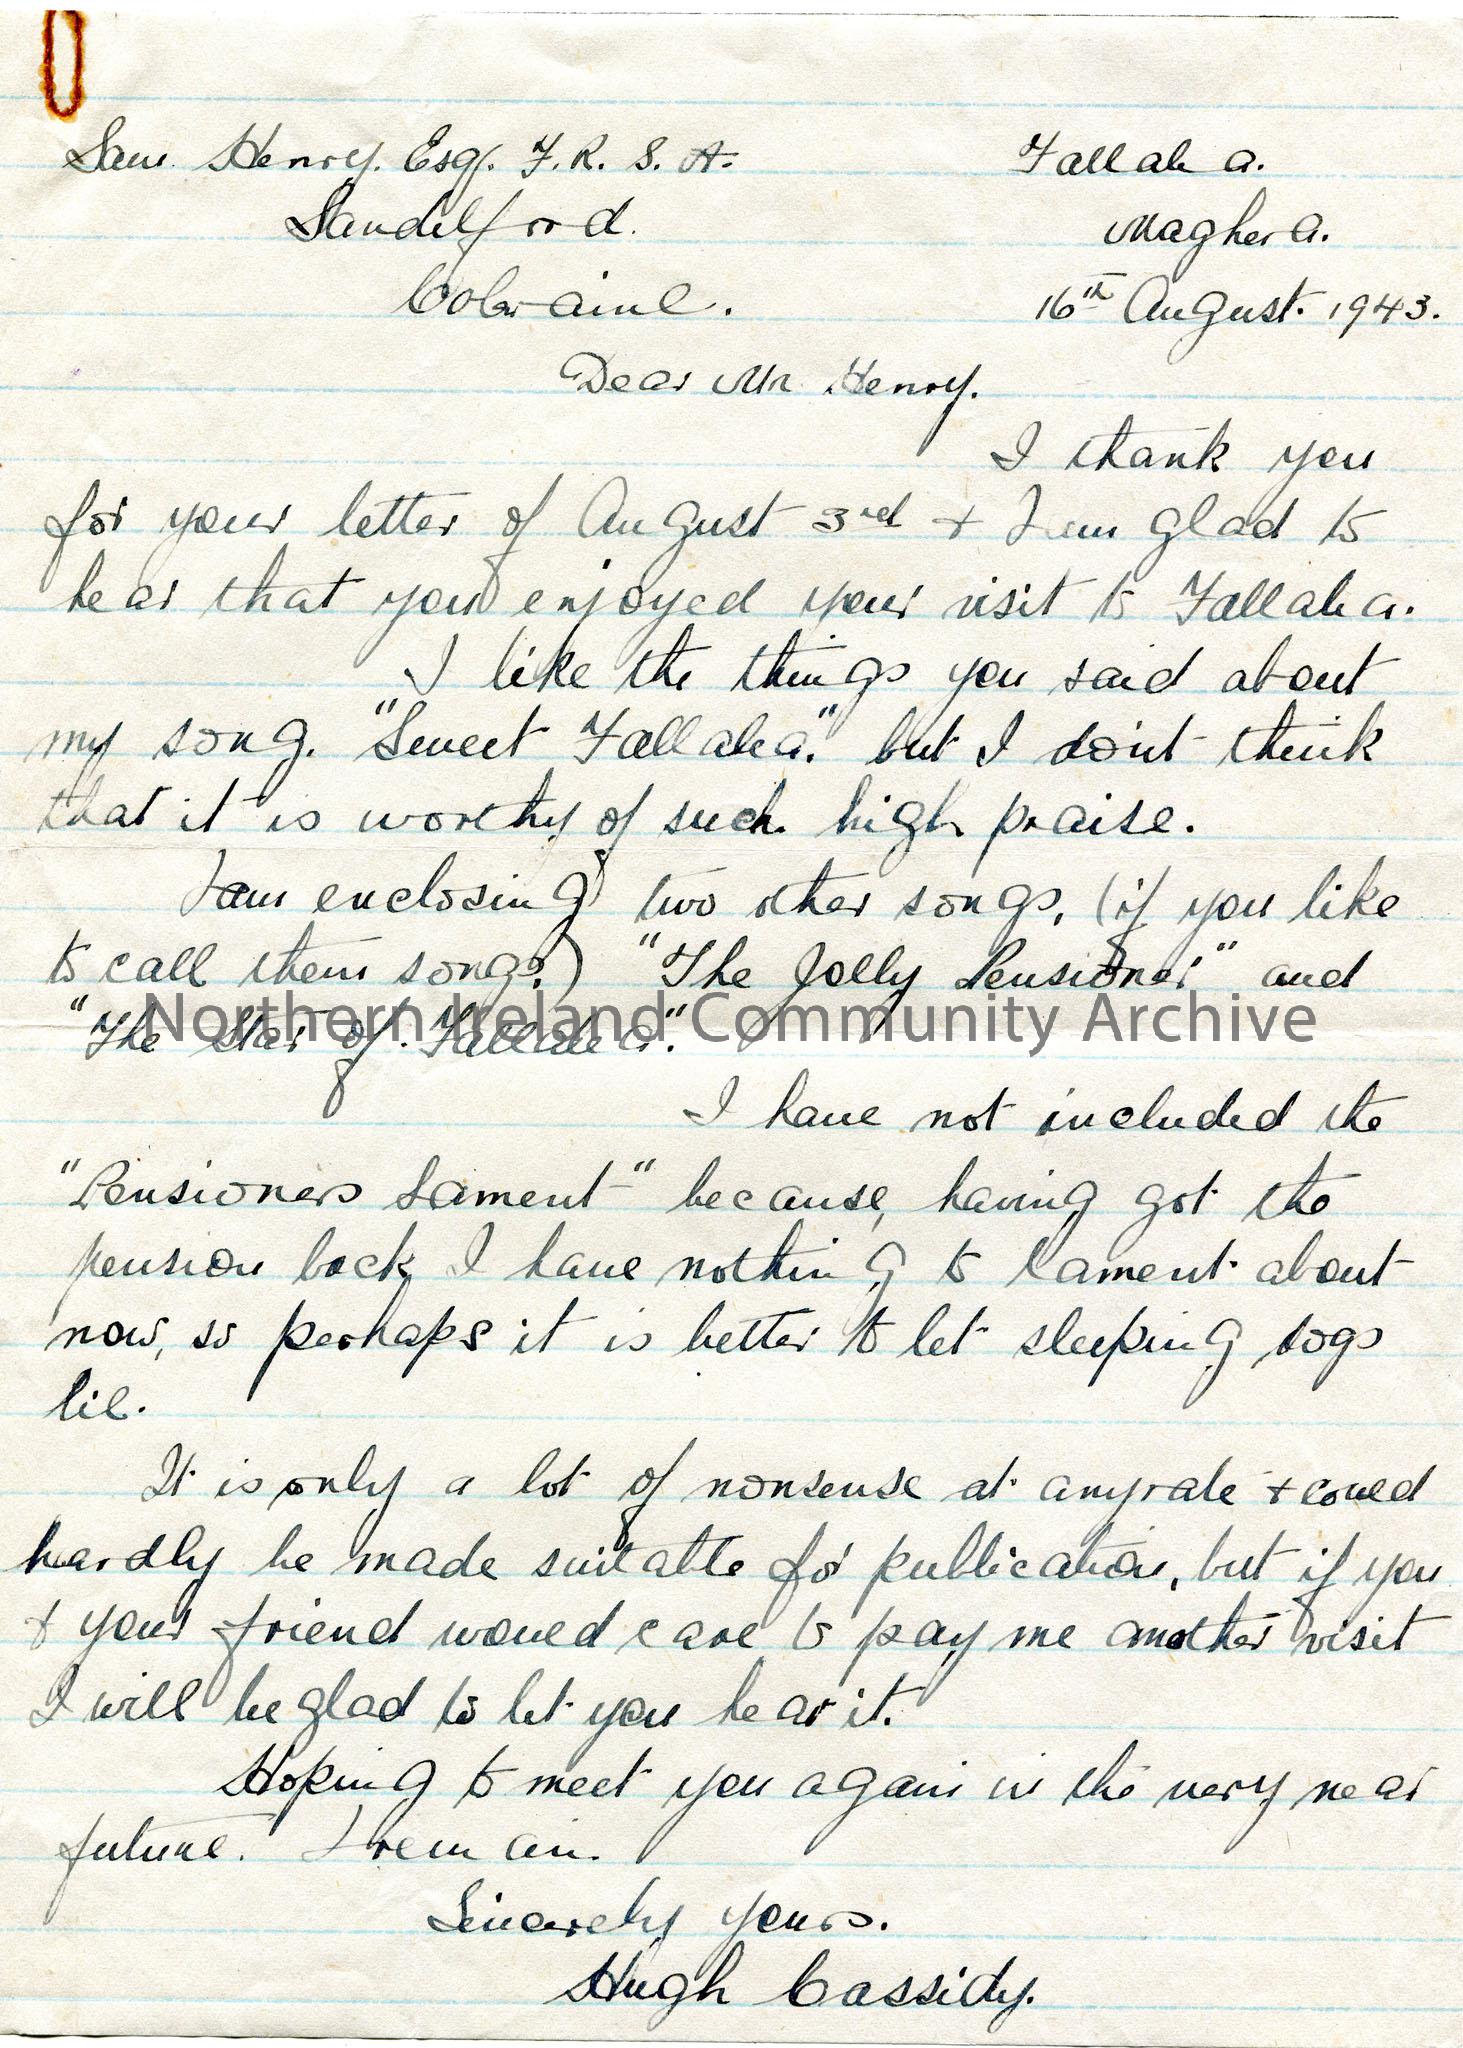 Sam Henry. Esq. F. R. S. A.
Sandelford.
Coleraine.
Fallahea.
Maghera.
16th August. 1943.
Dear Mr Henry.
I thank you
for your letter of August 3rd + I am glad to
hear that you enjoyed your visit to
I like the things you said about
my song. "Sweet but I don't think
that it is worthy of such high praise.
I am enclosing two other songs, (if you like
to call them songs.) "The Jolly Pensioner" and
"The Star of
Northern Ireland Community Archive
I have not included the
"Pensioners Lament" because, having got the
pension back, I have nothing to lament about
now, so perhaps it is better to let sleeping dogs
lie.
It is only a lot of nonsense at anyrate + could
hardly be made suitable for publication, but if you
+ your friend would care to pay me another visit
I will be glad to let you hear it.
Hoping to meet you again in the very near
future. I remain.
Sincerely yours.
Hugh Cassidy.